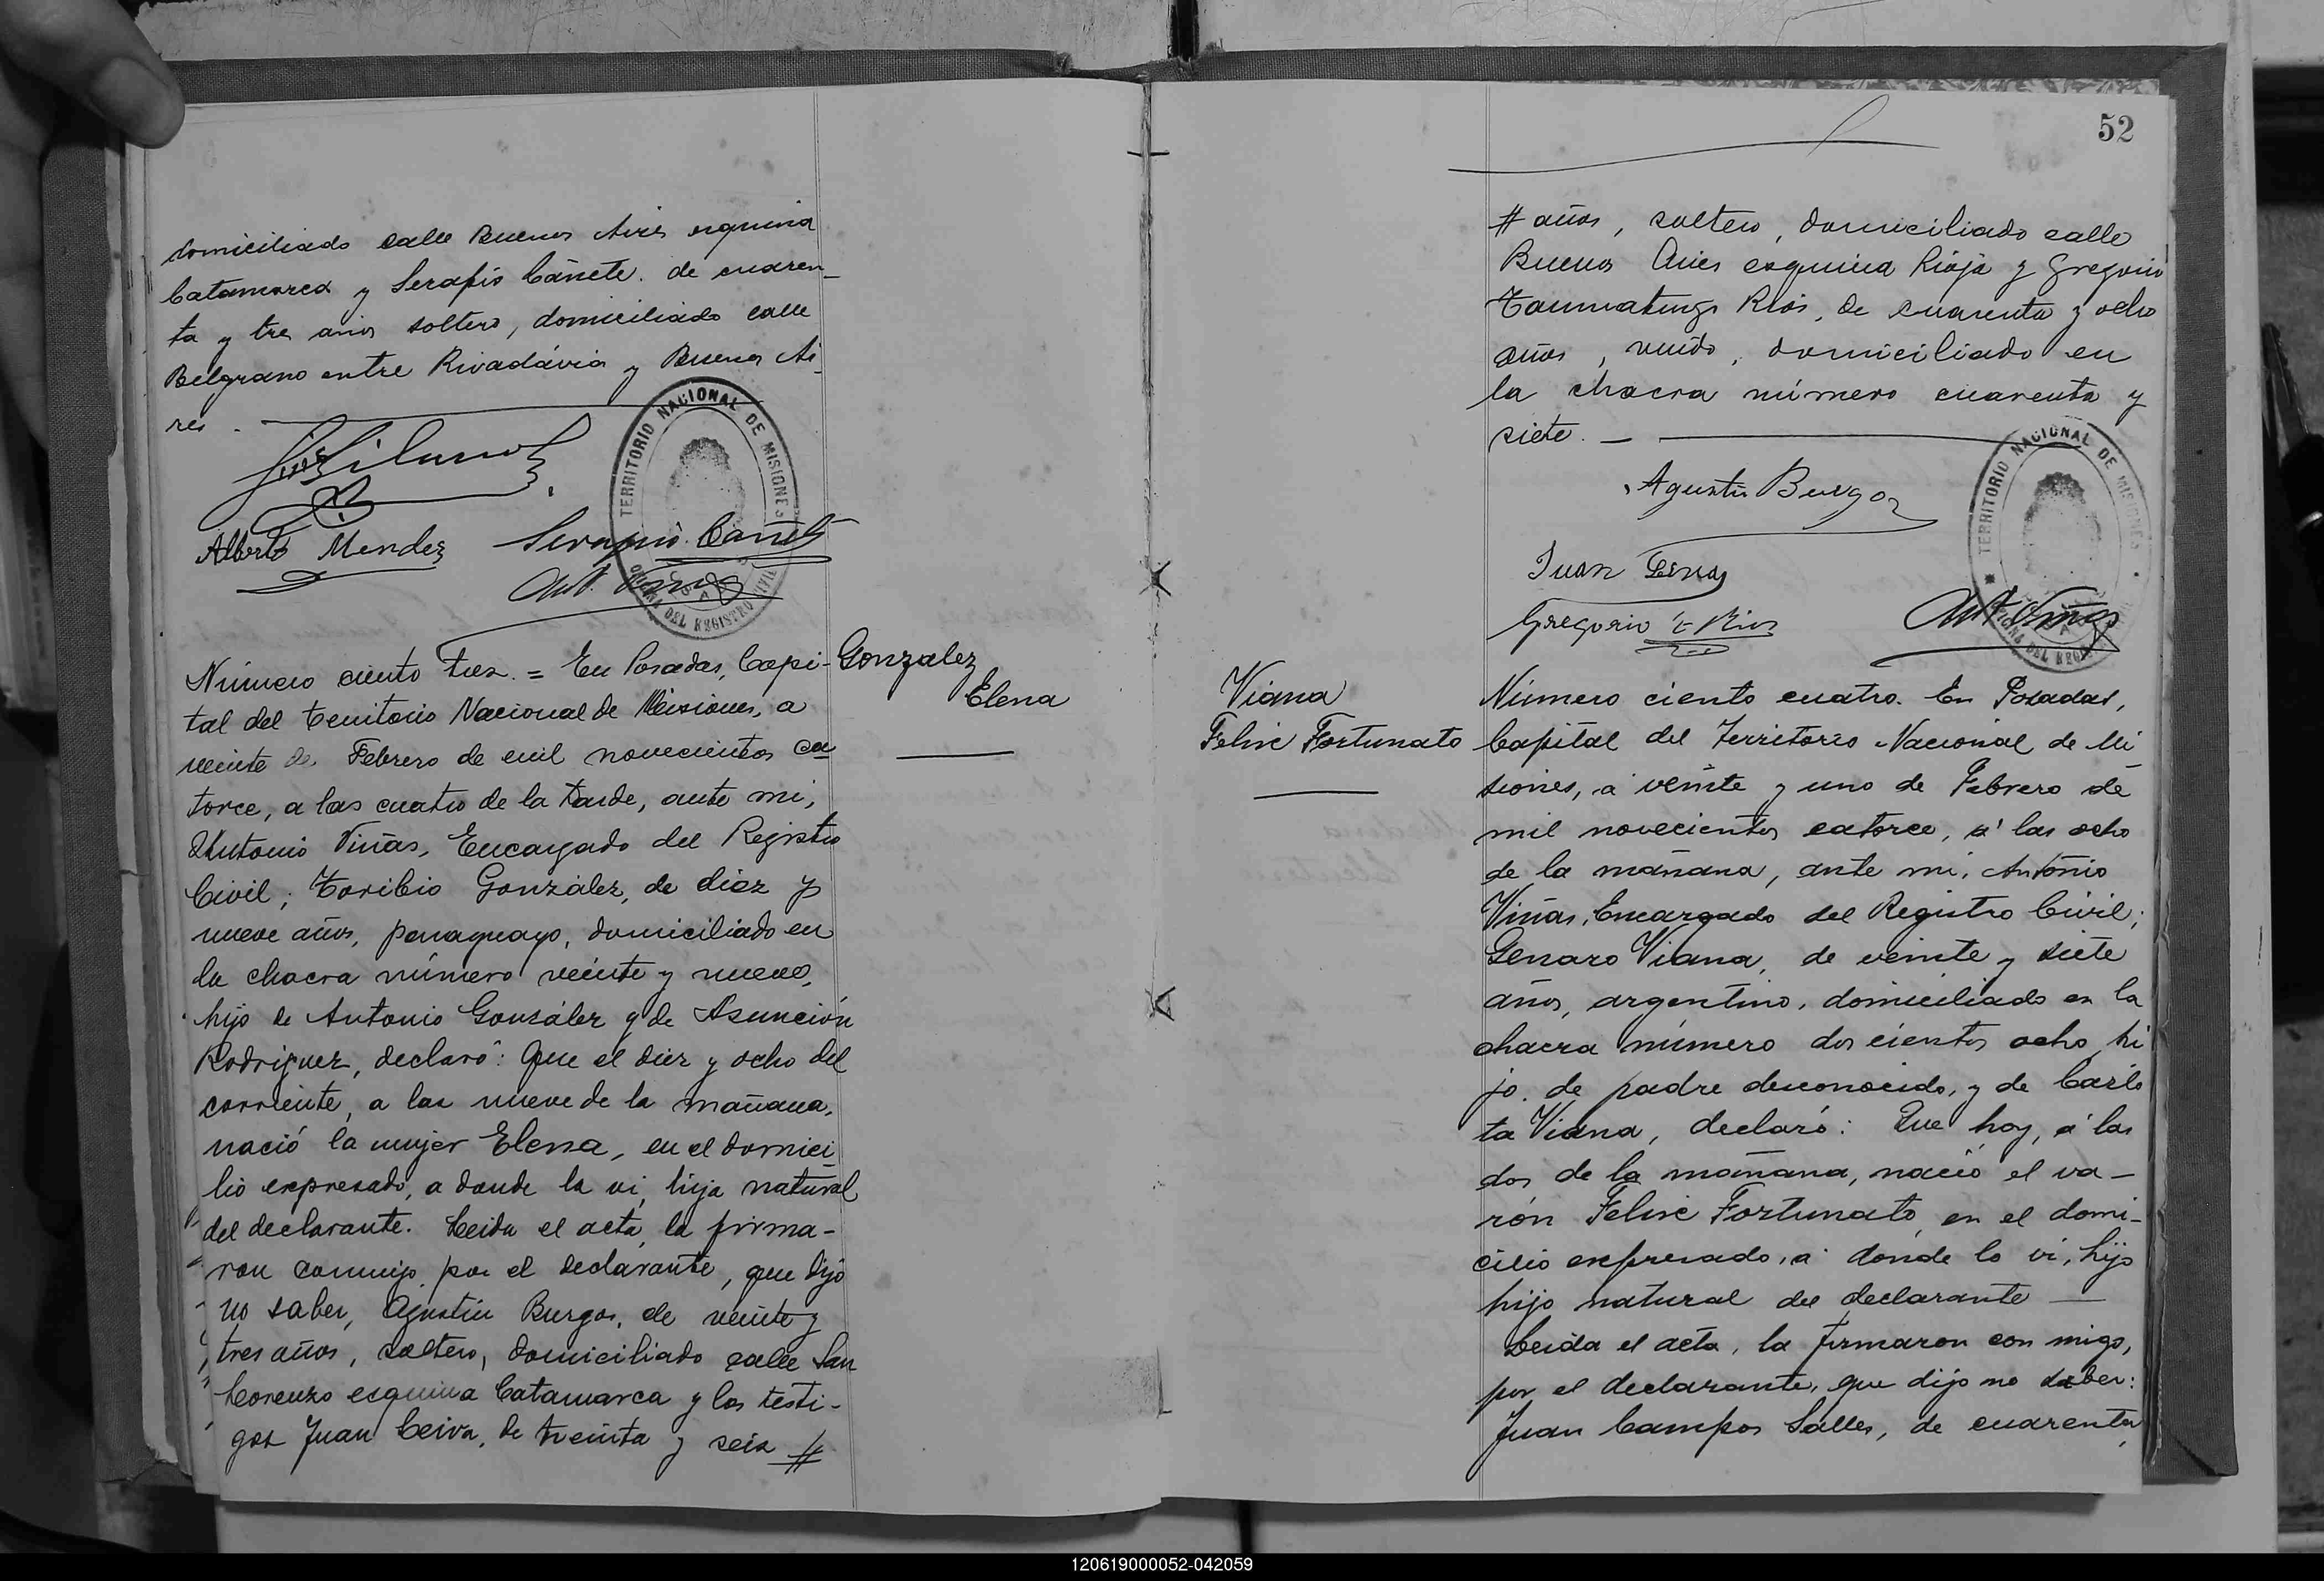 domiciliado calle Buenos Aires esquina
Catamarca y Serapio Cañete. de cuaren-
ta y tres años soltero, domiciliado calle
Belgrano entre Rivadavia y Buenos Ai-
res.
TERRITORIO NACIONAL DE MISIONES
OFICINA DEL REGISTRO CIVIL
Alberto Mendez
Serapio Cañete
Ant. Viñas
Número ciento tres. = En Posadas, Capi-
tal del Territorio Nacional de Misiones, a
veinte de Febrero de mil novecientos ca
torce, a las cuatro de la tarde, ante mi,
Antonio Viñas, Encargado del Registro
Civil; Toribio González, de diez y
nueve años, paraguayo, domiciliado en
la chacra número veinte y nueve,
hijo de Antonio González y de Asunción
Rodriguez, declaró: Que el diez y ocho del
corriente, a las nueve de la mañana,
nació la mujer Elena, en el domici-
lio expresado, a donde la vi, hija natural
del declarante. Leida el acta, la firma-
ron conmigo, por el declarante, que dijo
no saber, Agustin Burgos, de veinte y
tres años, soltero, domiciliado calle San
Lorenzo esquina Catamarca y los testi-
gos Juan Leiva, de treinta y seis #
Gonzalez
Elena
52
# años, soltero, domiciliado calle
Buenos Aires esquina Rioja y Gregorio
Taumaturgo Rios, de cuarenta y ocho
años, viudo, domiciliado en
la chacra número cuarenta y
siete. —
TERRITORIO NACIONAL DE MISIONES
OFICINA DEL REGISTRO
Agustin Burgos
Juan Leiva
Gregorio T Rios
Ant Viñas
Viana
Felix Fortunato
Número ciento cuatro. En Posadas,
Capital del Territorio Nacional de Mi
siones, á veinte y uno de Febrero de
mil novecientos catorce, á las ocho
de la mañana, ante mi, Antonio
Viñas, Encargado del Registro Civil;
Genaro Viana, de veinte y siete
años, argentino, domiciliado en la
chacra número dos cientos ocho, hi
jo. de padre desconocido, y de Carlo
ta Viana, declaró: Que hoy, á las
dos de la mañana, nació el va-
rón Felix Fortunato, en el domi-
cilio expresado, á donde lo vi, hijo
hijo natural del declarante —
Leida el acta, la firmaron con migo,
por el declarante, que dijo no saber:
Juan Campos Salles, de cuarenta
120619000052-042059